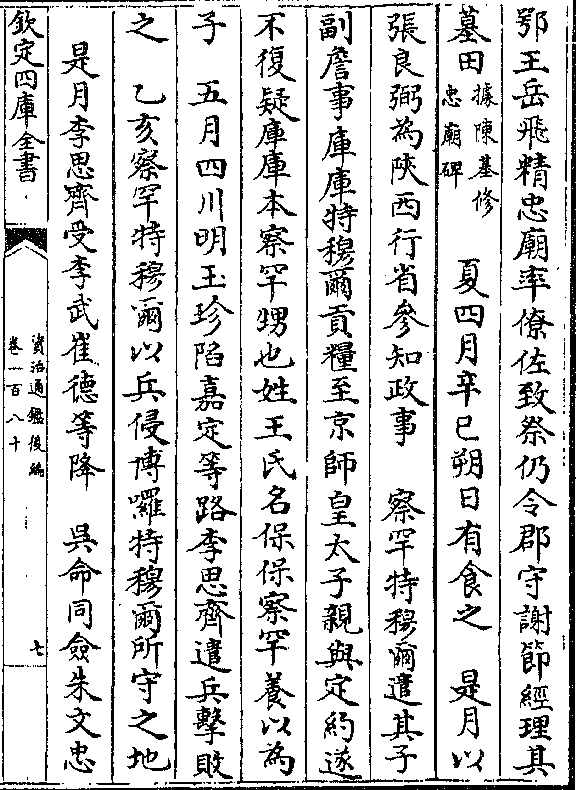 鄂王岳飛精忠廟率僚佐致祭仍令郡守謝節經理其
墓田據陳基修忠廟碑　夏四月辛巳朔日有食之　是月以
張良弼為陜西行省參知政事　察罕特穆爾遣其子
副詹事庫庫特穆爾貢糧至京師皇太子親與定約遂
不復疑庫庫本察罕甥也姓王氏名保保察罕養以為
子　五月四川明玉珍陷嘉定等路李思齊遣兵擊敗
之　乙亥察罕特穆爾以兵侵博囉特穆爾所守之地
是月李思齊受李武崔德等降　吳命同僉朱文忠
欽定四庫全書
資治通鑑後編
卷一百八十
七